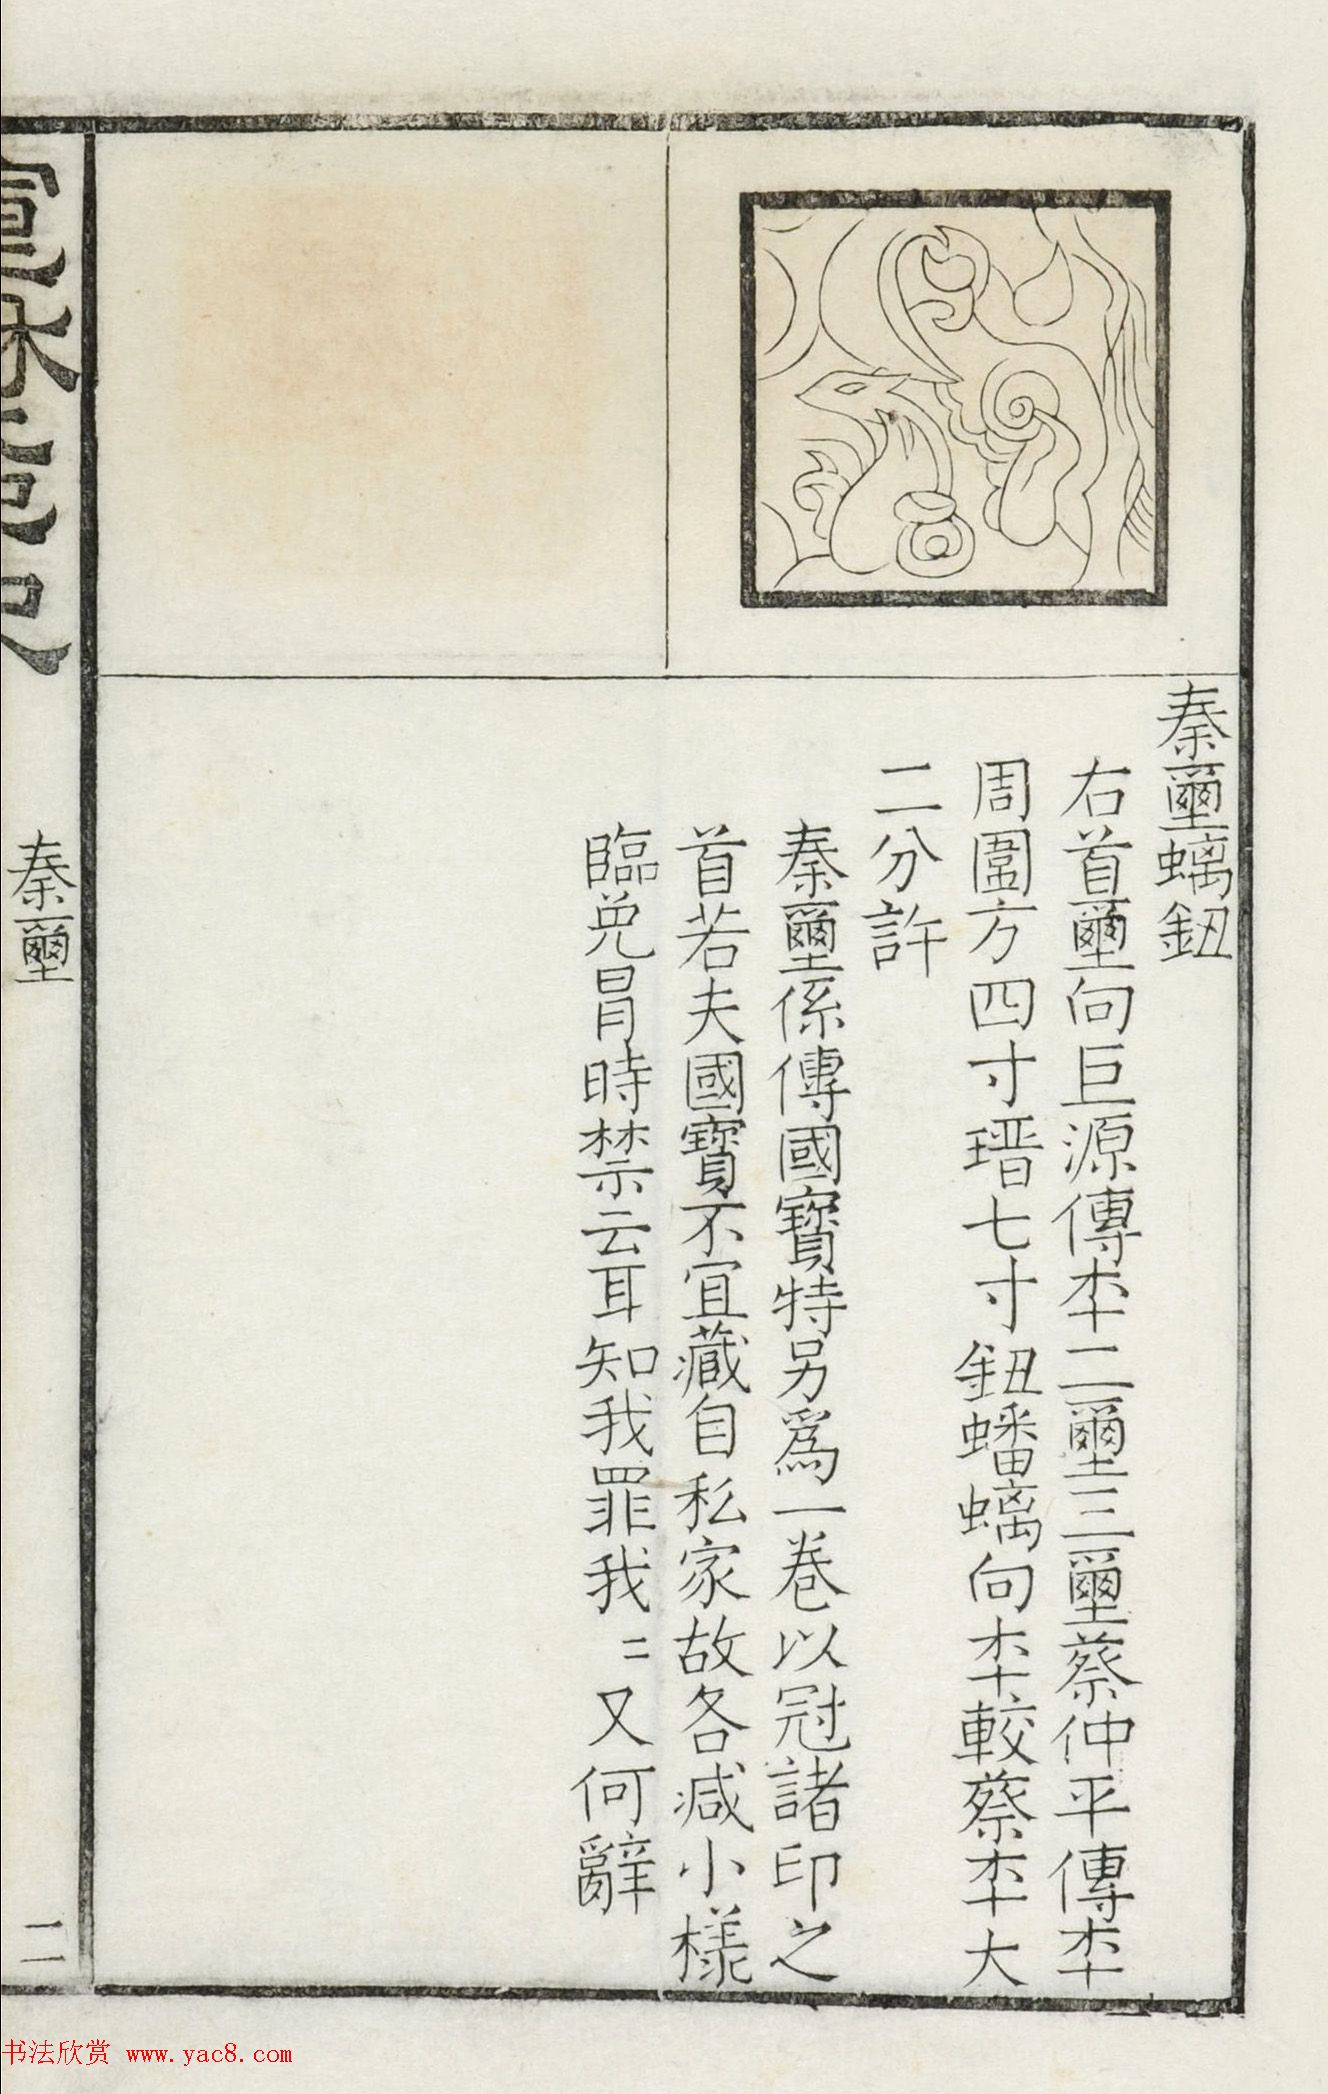 秦璽螭鈕
右首璽向巨源傳本二璽三璽蔡仲平傳本
周圍方四寸瑨七寸鈕蟠螭向本較蔡本大
二分許
秦璽係傳國寶特另爲一卷以冠諸印之
首若夫國寶不宜藏自私家故各減小樣
臨免冒時禁云耳知我罪我〻又何辭
秦璽
二
书法欣赏 www.yac8.com